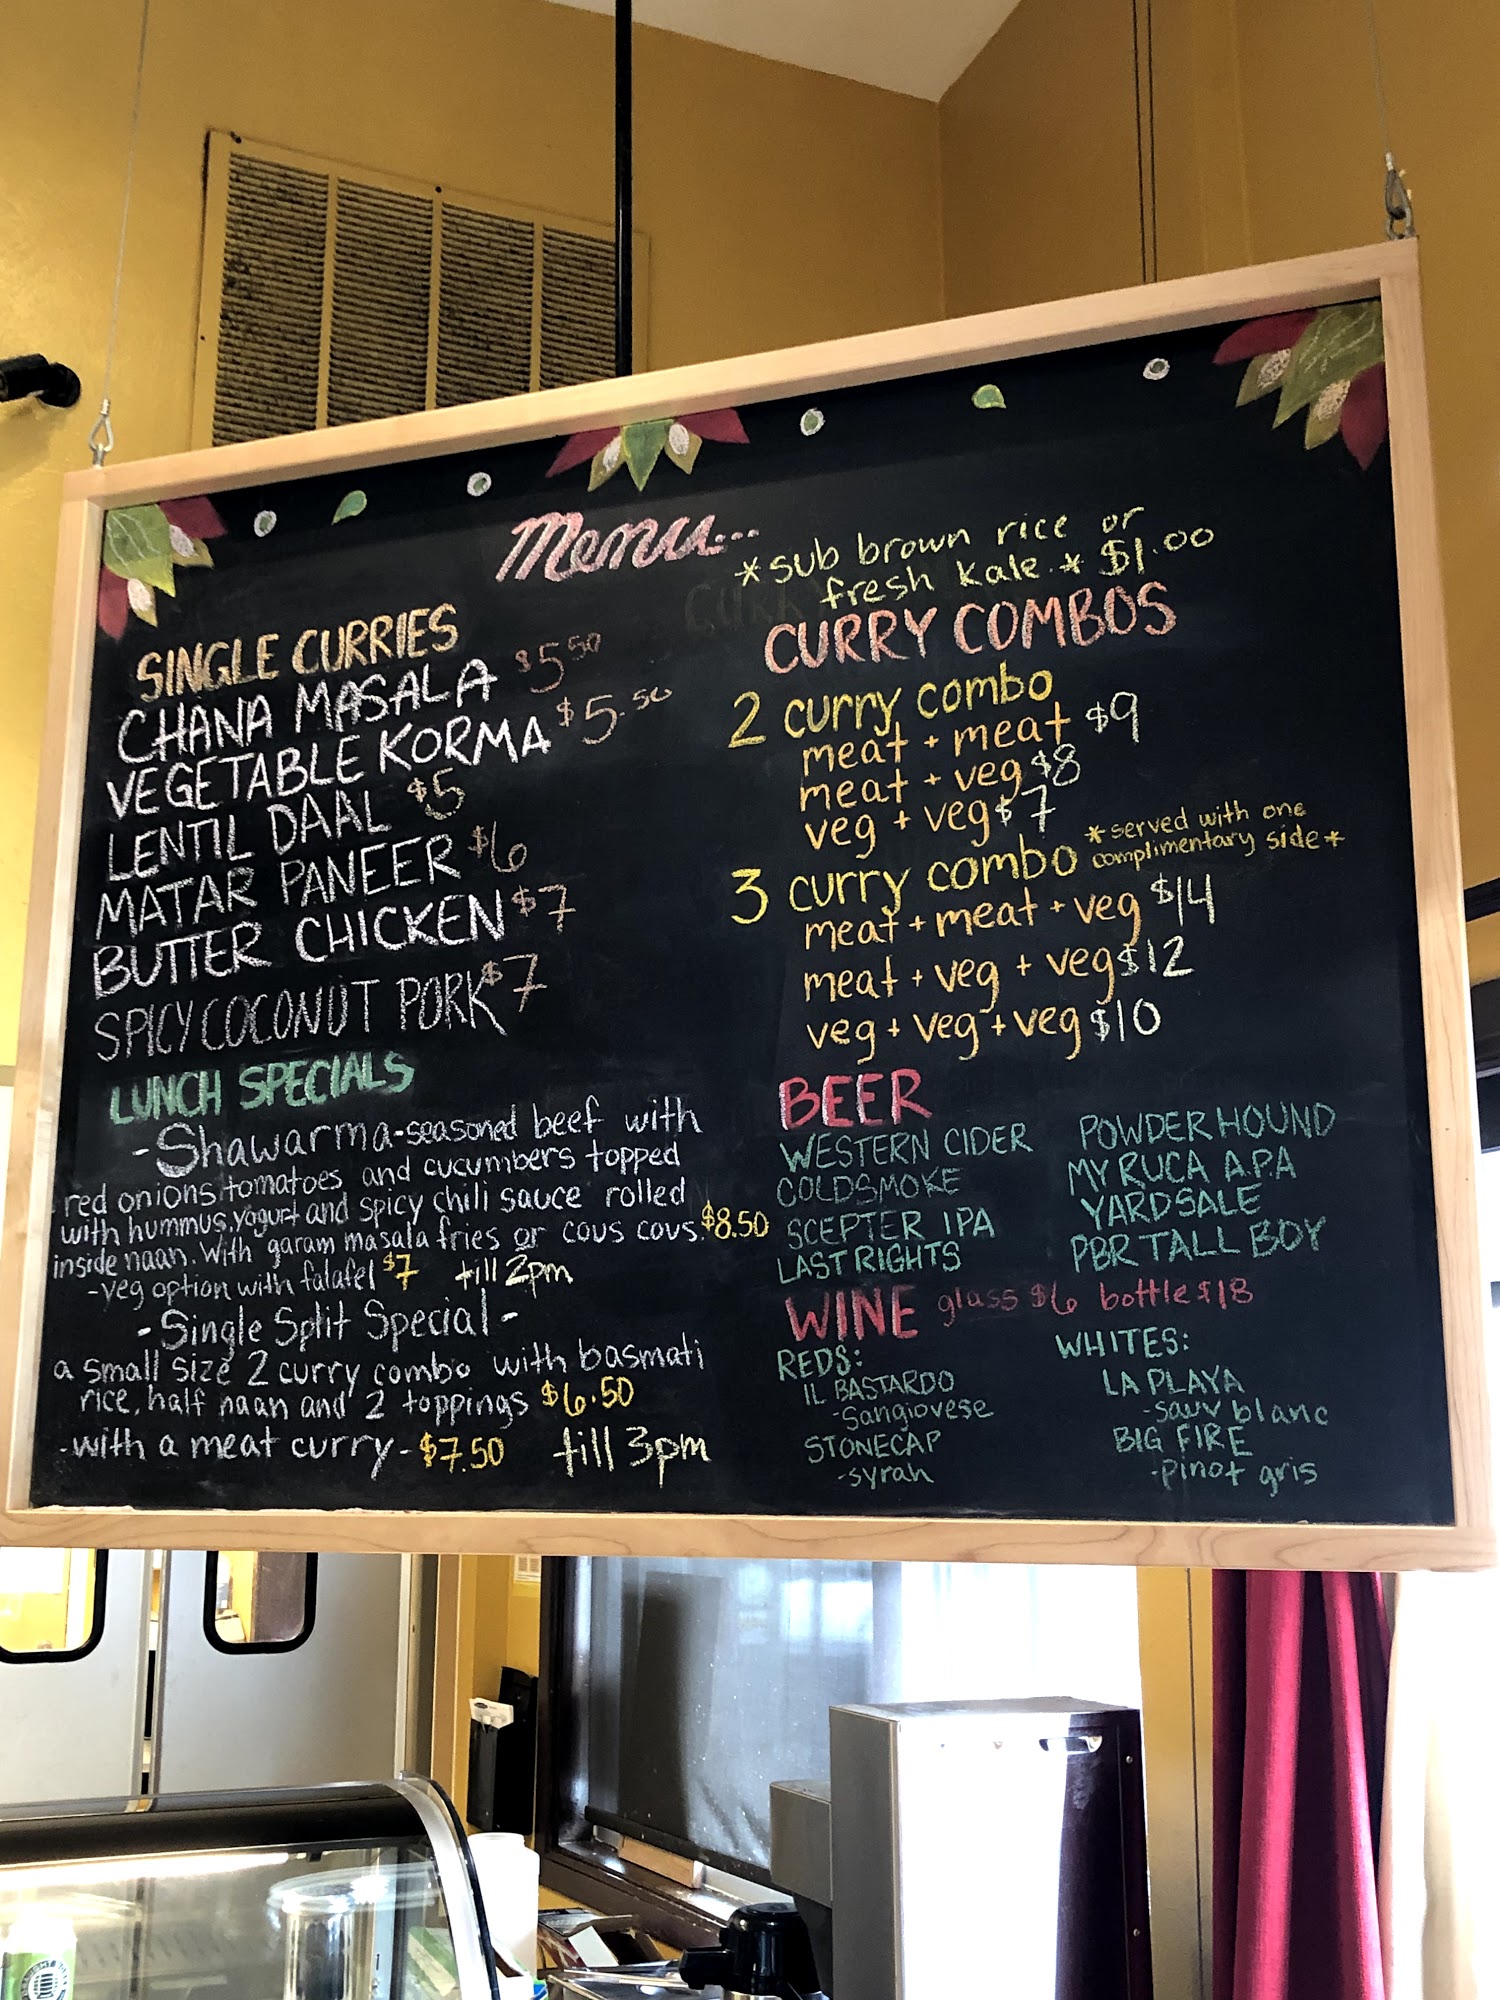 Menu...
*sub brown rice or
fresh kale.* $1.00
SINGLE CURRIES
CHANA MASALA $5.50
VEGETABLE KORMA $5.50
LENTIL DAAL $5
MATAR PANEER $6
BUTTER CHICKEN $7
SPICY COCONUT PORK $7
LUNCH SPECIALS
-Shawarma-seasoned beef with
red onions tomatoes and cucumbers topped
with hummus, yogurt and spicy chili sauce rolled
inside naan. With garam masala fries or cous cous. $8.50
-veg option with falafel $7 till 2pm
-Single Split Special-
a small size 2 curry combo with basmati
rice, half naan and 2 toppings $6.50
-with a meat curry- $7.50 till 3pm
CURRY COMBOS
2 curry combo
meat + meat $9
meat + veg $8
veg + veg $7
3 curry combo
*served with one
complimentary side*
meat + meat + veg $14
meat + veg + veg $12
veg + veg + veg $10
BEER
WESTERN CIDER
COLDSMOKE
SCEPTER IPA
LAST RIGHTS
POWDER HOUND
MY RUCA A.P.A
YARDSALE
PBR TALL BOY
WINE glass $6 bottle $18
REDS:
IL BASTARDO
-Sangiovese
STONECAP
-syrah
WHITES:
LA PLAYA
-sauv blanc
BIG FIRE
-pinot gris